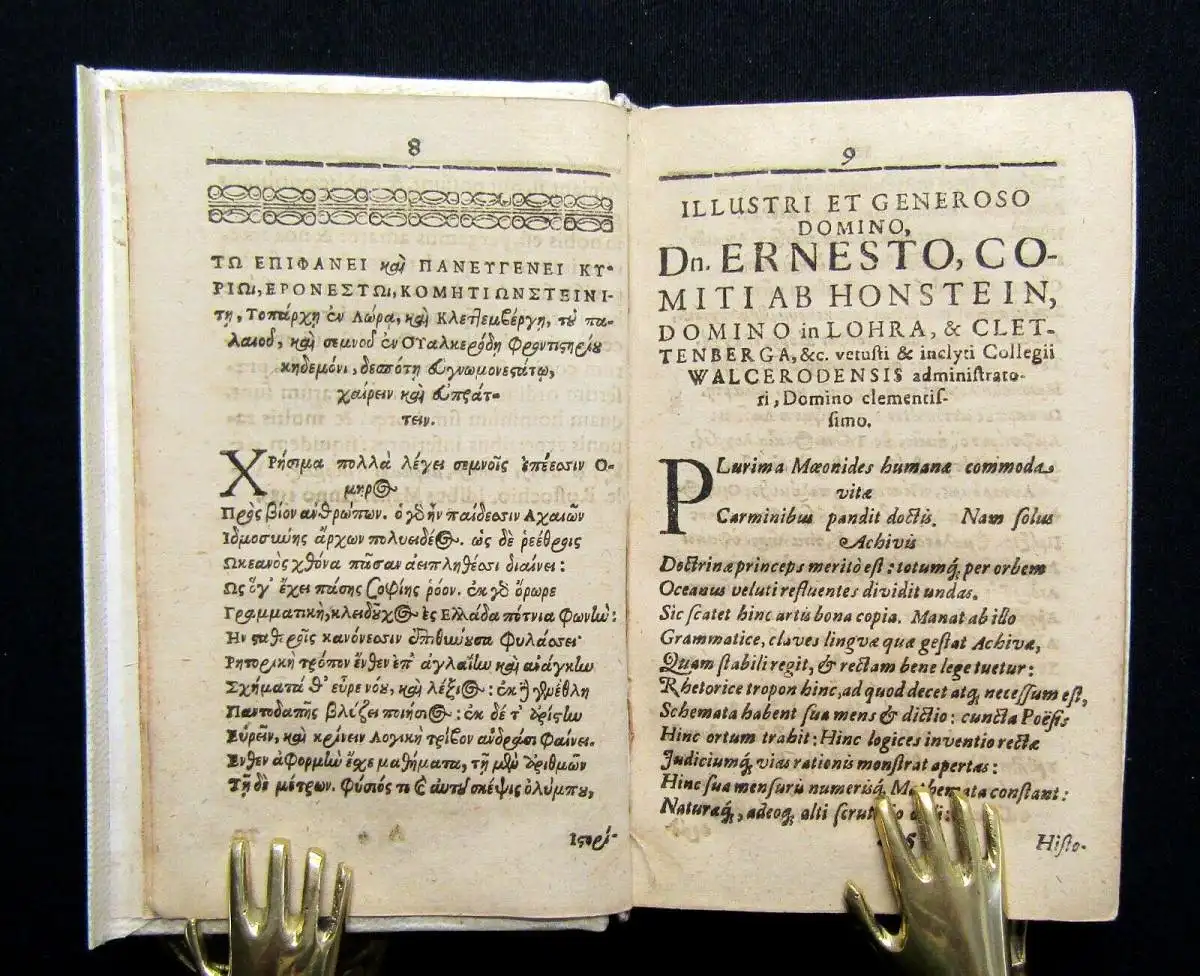 8
ΤΩ ΕΠΙΦΑΝΕΙ καὶ ΠΑΝΕΥΓΕΝΕΙ ΚΥ-
ΡΙΩι, ΕΡΟΝΕΣΤΩι, ΚΟΜΗΤΙ ΩΝΣΤΕΙΝΙ-
τῃ, Τοπάρχῃ ἐν Λώρα, καὶ Κλετλεμβέργῃ, τῦ πα-
λαιοῦ, καὶ σεμνοῦ ἐν Ουαλκερόδῃ Φροντιςηρίου
κηδεμόνι, δεσπότῃ εὐγνωμονεςάτῳ,
χαίρειν καὶ εὐπράτ-
τειν.
ΧΡήσιμα πολλὰ λέγει σεμνοῖς ἐπέεσσιν Ο-
μηρος
Πρὸς βίον ἀνθρώπων. ὁ γὸ ἦν παίδεσσιν Αχαιῶν
Ιδμοσύνης ἄρχων πολυειδέος. ὡς δὲ ῥεέθροις
Ωκεανὸς χθόνα πᾶσαν ἀειπληθέοσι διαίνει:
Ως ὅγ' ἔχει πάσης σοφίης ῥόον. ἐκ γὸ ὄρωρε
Γραμματικὴ, κλειδοῦχος ἐς Ελλάδα πότνια Φωνὴν:
Ην καθαροῖς κανόνεσσιν ἐπιθύνουσα Φυλάσσει
Ρητορικὴ τρόπον ἔνθεν ἐπ' ἀγλαΐην καὶ ἀνάγκην
Σχήματά θ' εὗρε νόυ, καὶ λέξιος: ἐκ δὲ γενέθλη
Παντοδαπῆς βλίζει ποιήσιος: ἐκ δέ τ' ἀρίςην
Εὑρεῖν, καὶ κρίνειν Λογικὴ τρίβον ἀνδράσι Φαίνει.
Ενθεν ἀφορμὴν ἔχε μαθήματα, τῇ μὲν ἀριθμῶν
Τῇ δὲ μέτρων. Φύσιός τε καὶ αὐτοῦ σκέψις ὀλύμπου,
Ιςορί-
9
ILLUSTRI ET GENEROSO
DOMINO,
Dn. ERNESTO, CO-
MITI AB HONSTEIN,
DOMINO in LOHRA, & CLET-
TENBERGA, &c. vetuſti & inclyti Collegii
WALCERODENSIS adminiſtrato-
ri, Domino clementiſ-
ſimo.
PLurima Mæonides humanæ commoda
vitæ
Carminibus pandit doctis. Nam ſolus
Achivis
Doctrinæ princeps meritò eſt: totumq́; per orbem
Oceanus veluti refluentes dividit undas.
Sic ſcatet hinc artis bona copia. Manat ab illo
Grammatice, claves lingvæ quæ geſtat Achivæ,
Quam ſtabili regit, & rectam bene lege tuetur:
Rhetorice tropon hinc, ad quod decet atq; neceſſum eſt,
Schemata habent ſua mens & dictio: cuncta Poëſis
Hinc ortum trahit: Hinc logices inventio rectæ
Judiciumq́; vias rationis monſtrat apertas:
Hinc ſua menſuris numerisq́; Mathemata conſtant:
Naturæq́;, adeoq́; alti
5
Hiſto-